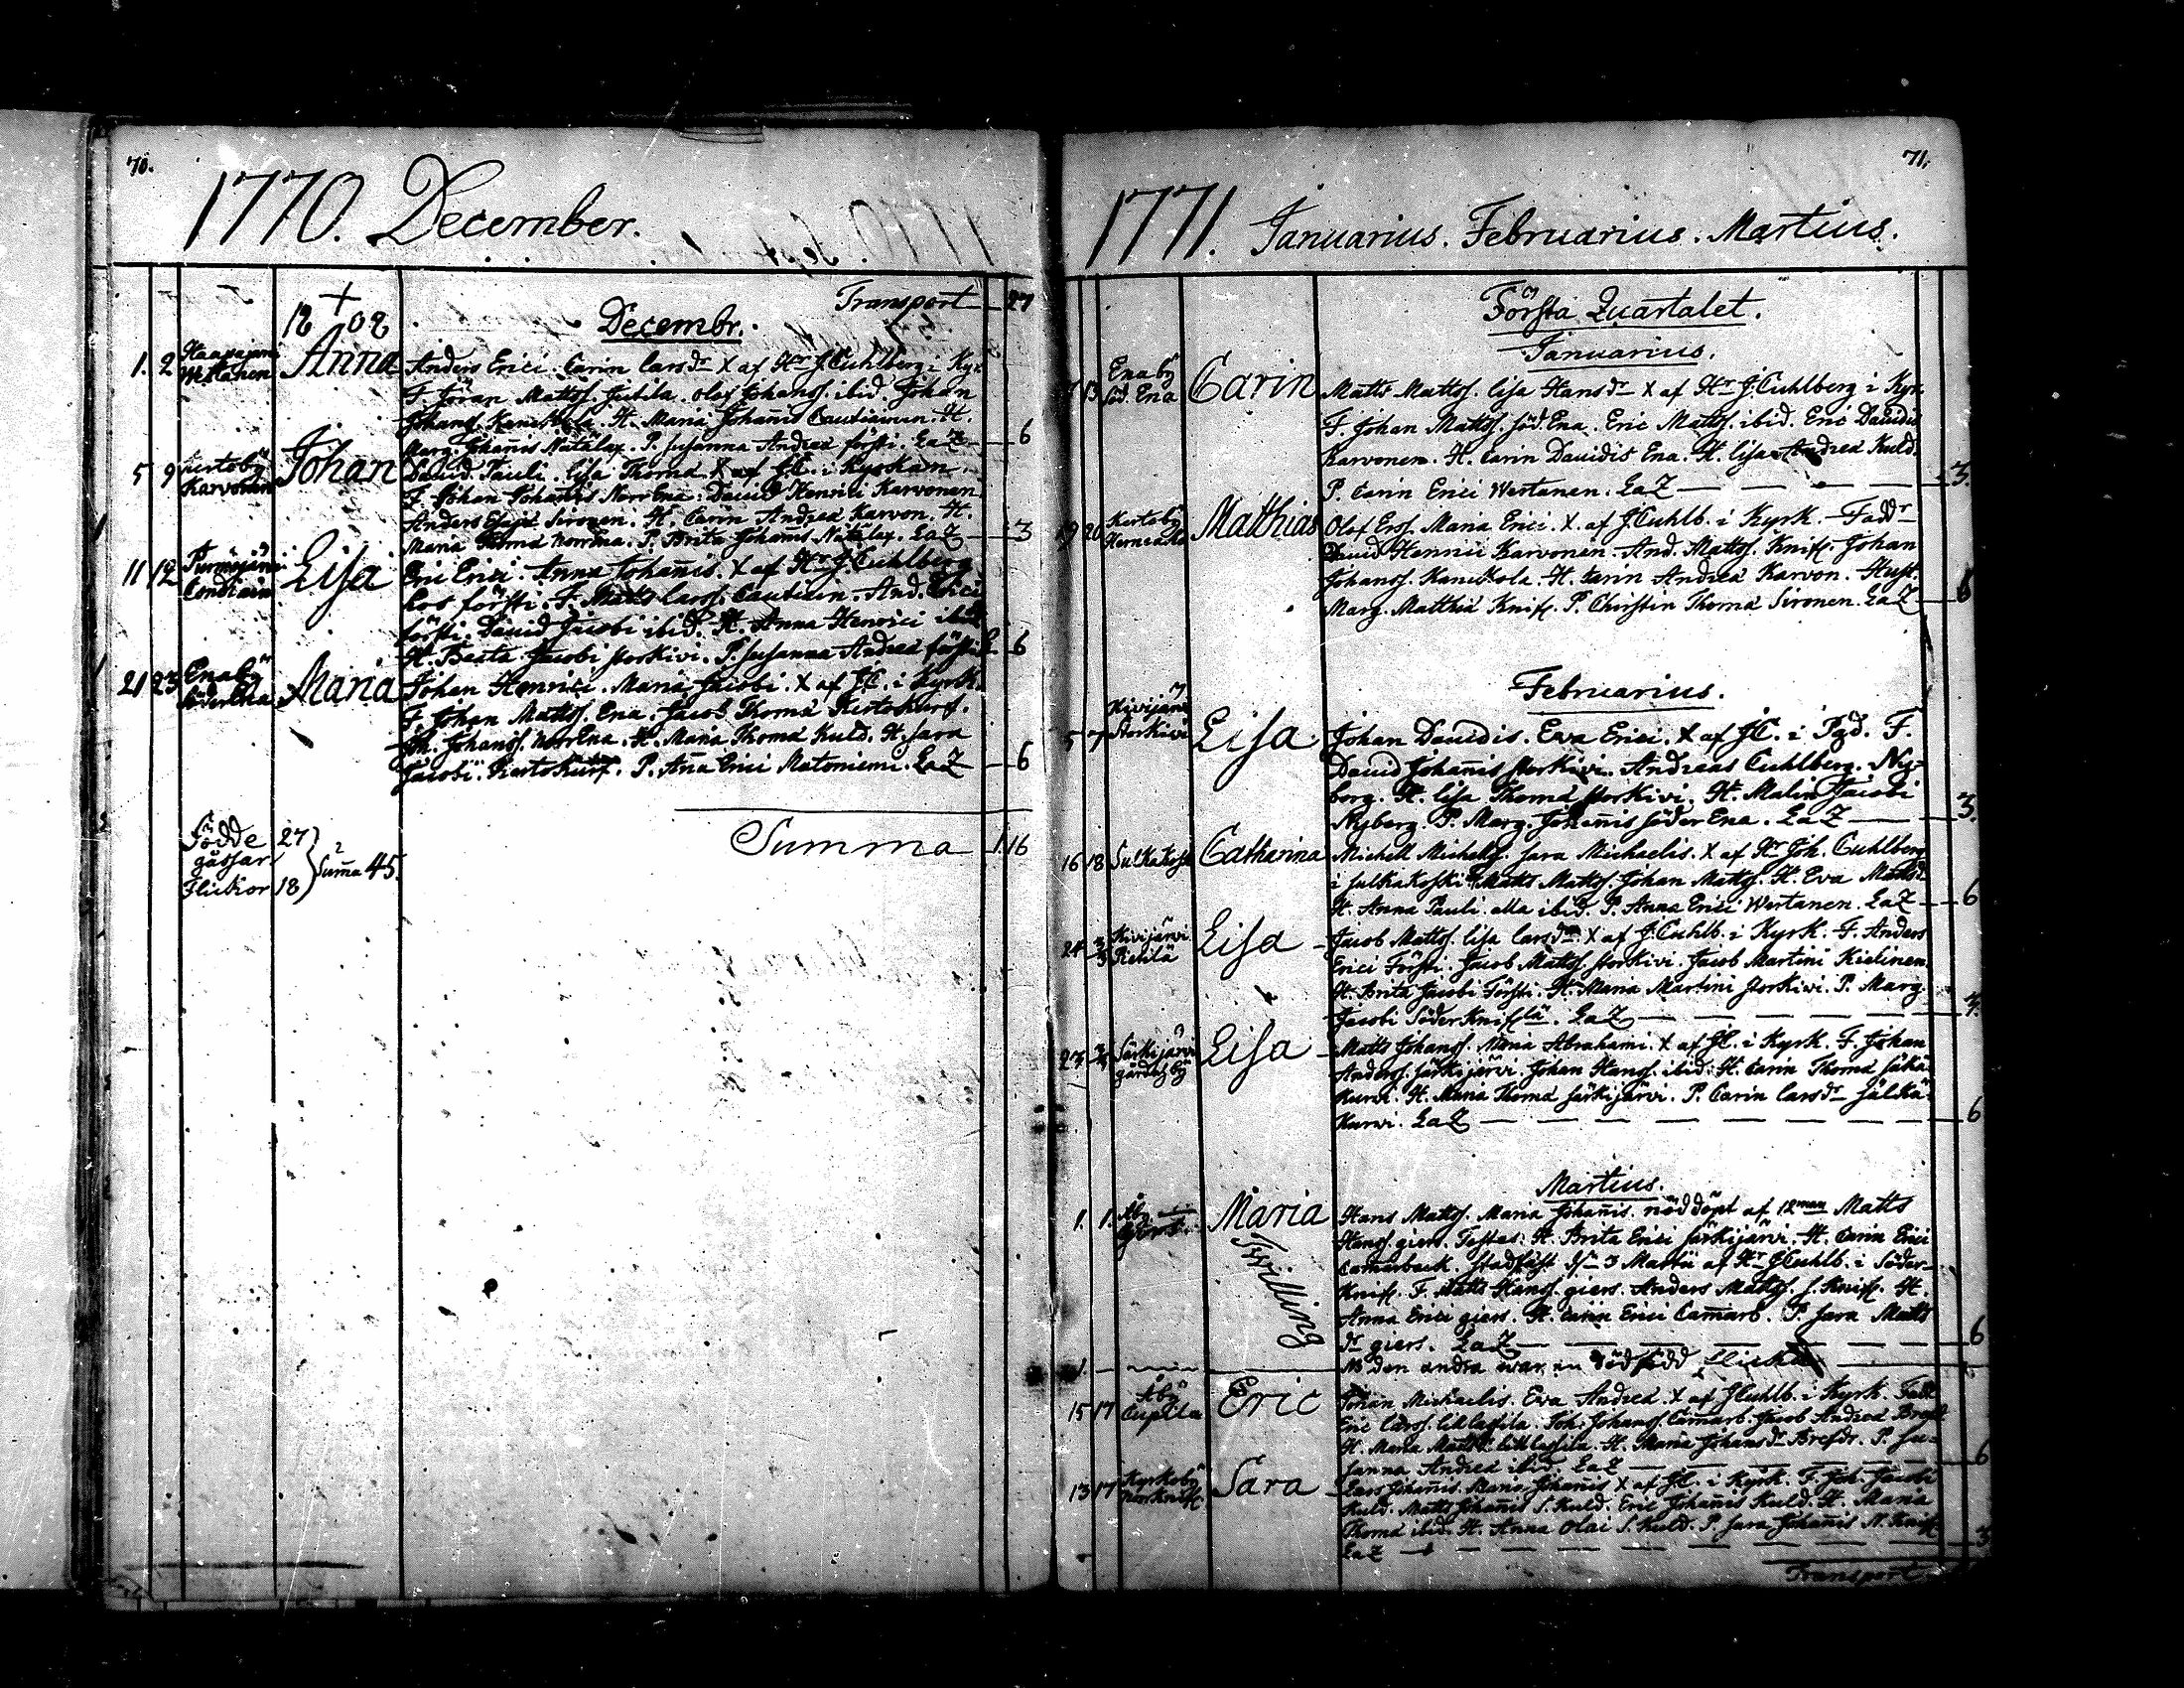 70.
1770. December.
Transport 27
Decembr.
1. 2 Haapajärvi Westanen Anna Anders Erici. Carin Larsdr X af Hr J. Cuhlberg i Kyr.
F. Jöran Mattss. Jutila. Olof Johanss. ibid. Johan
Johanss. Kanckola. H. Maria Johannis Cautiainen. H.
Marg. Johannis Nätälax. P. Susanna Andreæ försti. LaZ 6
5 9 Kertoby Karvonen Johan David Pauli. Lisa Thomæ X af J.C. i Kyrkan
F. Johan Johannis Norr Ena. David Henrici Karvonen.
Anders Esajæ Sironen. H. Carin Andreæ Karvon. H.
Maria Thomæ Norrena. P. Brita Johannis Nätälax. LaZ 3
11 12 Purmojärvi Conttiain Lisa Eric Erici. Anna Johannis. X af Hr J. Cuhlberg
hos försti. F. Matts Larss. Cautiain. And. Erici
försti. David Jacobi ibid. H. Anna Henrici ibid
H. Beata Jacobi storkivi. P. Susanna Andreæ försti 6
21 23 Enaby Söder Ena Maria Johan Henrici. Maria Jacobi. X af J.C. i Kyrk.
F. Johan Mattss. Ena. Jacob Thomæ Kertokurf.
Joh. Johanss. Norr Ena. H. Maria Thomæ Kuld. H. Sara
Jacobi Kertokurf. P. Anna Erici Matoniemi. LaZ 6
Summa 1 16
Födde
gåssar 27
Flickor 18 Summa 45.
71.
1771. Januarius. Februarius. Martius.
Första Quartalet.
Januarius.
13 Enaby Söd. Ena Carin Matts Mattss. Lisa Hansdr X af Hr J. Cuhlberg i Kyr.
F. Johan Mattss. Söd. Ena. Eric Mattss. ibid. Eric Davidis
Karvonen. H. Carin Davidis Ena. H. Lisa Andreæ Kuld.
P. Carin Erici Westanen. LaZ 3.
19 20 Kertoby Matthias Olof Erss. Maria Erici. X. af J. Cuhlb. i Kyrk. Faddr
David Henrici Karvonen. And. Mattss. Knif. Johan
Johanss. Kanckola. H. Carin Andreæ Karvon. Hust.
Marg. Matthiæ Knif. P. Christin Thomæ Sironen. LaZ 6
Februarius.
5 7 Kivijärvi Storkivi Lisa Johan Davidis. Eva Erici. X af J.C. i Pgd. F.
David Johannis storkivi. Andreas Cuhlberg. Ny-
borg. H. Lisa Thomæ storkivi. H. Malin Jacobi
Nyberg. P. Marg. Johannis söder Ena. LaZ 3.
16 18 Sulkakoski Catharina Michell Michelss. Sara Michaelis. X af Hr Joh. Cuhlberg
i sulkakoski. Matts Mattss. Johan Mattss. H. Eva Mattsdr
H. Anna Pauli. alla ibid. P. Anna Erici Westanen. LaZ 6
24 3/3 Kivijärvi Pietilä Lisa Jacob Mattss. Lisa Larsdr. X af J. Cuhlb. i Kyrk. F. Anders
Erici Försti. Jacob Mattss. storkivi. Jacob Martini Kielinen.
H. Brita Jacobi Försti. H. Maria Martini storkivi. P. Marg.
Jacobi Söder Knifslä. LaZ 3.
Särkijärvi Lisa Matts Johanss. Maria Abrahami. X af J.C. i Kyrk. F. Johan
Anderss. Särkijärvi. Johan Hanss. ibid. H. Carin Thomæ Sälkä-
Kurvi. H. Maria Thomæ Särkijärvi. P. Carin Larsdr Sälkä-
Kurvi. LaZ 6
Martius.
1. 1. Åby Maria Hans Mattss. Maria Johannis. nöddöpt af 12man Matts
Hanss. giers. Testes: H. Brita Erici Särkijärvi. H. Carin Erici
Camarback. stadfäst d. 3 Martii af Hr J. Cuhlb. i Söder
Knif. F. Matts Hanss. giers. Anders Mattss. S. Knif. H.
Anna Erici giers. H. Carin Erici Camarb. P. Sara Matts
dr giers. LaZ 6
Twilling
1. NB den andra war en dödfödd flicka
15 17 Åby Cupila Eric Johan Michaelis. Eva Andreæ. X af J. Cuhlb. i Kyrk. Fadd
Eric Larss. Joh. Johanss. Camarb. Jacob Andreæ
H. Maria Mattsdr. H. Maria Johansdr. P. Su-
sanna Andreæ ibid. LaZ 6
13 17 Kyrkoby Norr Knif Sara Lars Johannis. Maria Johannis X af J.C. i Kyrk. F. Joh. Jacobi
Kuld. Matts Johannis S. Kuld. Eric Johannis Kuld. H. Maria
Thomæ ibid. H. Anna Olai S. Kuld. P. Sara Johannis N. Knif
LaZ 3
Transport